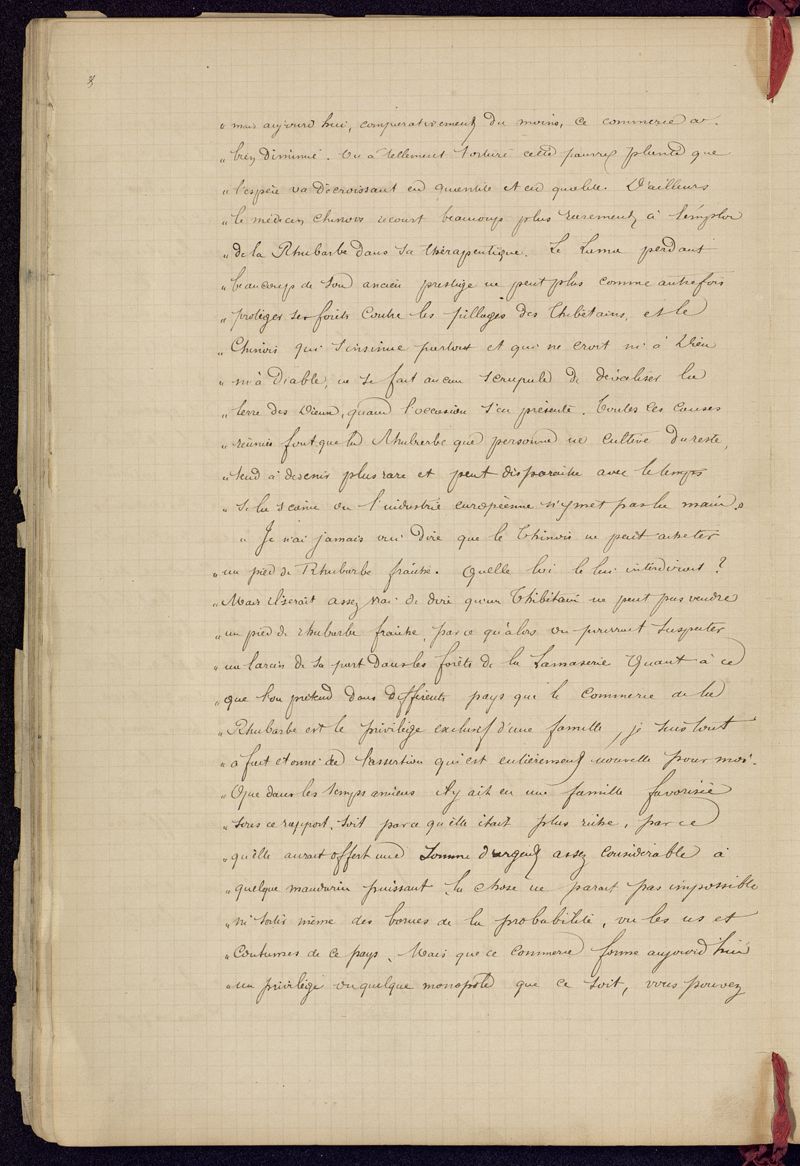 " mais aujourd'hui, comparativement du moins, ce commerce a
" bien diminué. On a tellement torturé cette pauvre plante que
" l'espèce va décroissant en quantité et en qualité. D'ailleurs
" le médecin chinois recourt beaucoup plus rarement à l'emploi
" de la Rhubarbe dans sa thérapeutique. Le Lama perdant
" beaucoup de son ancien prestige ne peut plus comme autrefois
" protéger ses forêts contre les pillages des Thibétains, et le
" Chinois qui s'insinue partout et qui ne croit ni à Dieu
" ni à Diable, ne se fait aucun scrupule de dévaliser la
" terre des Dieux, quand l'occasion s'en présente. Toutes ces causes
" réunies font que la Rhubarbe que personne ne cultive du reste,
" tend à devenir plus rare et peut disparaitre avec le temps
" si la science ou l'industrie européenne n'y met pas la main.
" Je n'ai jamais ouï dire que le Chinois ne peut acheter
" un pied de Rhubarbe fraîche. Quelle loi le lui interdirait ?
" Mais il serait assez vrai de dire qu'un Thibétain ne peut pas vendre
" un pied de rhubarbe fraiche, parce qu'alors on pourrait suspecter
" un larcin de sa part dans les forêts de la Lamaserie Quant à ce
" que l'on prétend dans différents pays que le commerce de la
" Rhubarbe est le privilège exclusif d'une famille, je suis tout
" à fait étonné de l'assertion qui est entièrement nouvelle pour moi.
" Que dans les temps anciens il y ait eu une famille favorisée
" sous ce rapport, soit parce qu'elle était plus riche, parce
" qu'elle aurait offert une somme d'argent assez considérable à
" quelque mandarin puissant la chose ne parait pas impossible
" ni sortir même des bornes de la probabilité, vu les us et
" coutumes de ce pays. Mais que ce commerce forme aujourd'hui
" un privilège ou quelque monopole que ce soit, vous pouvez